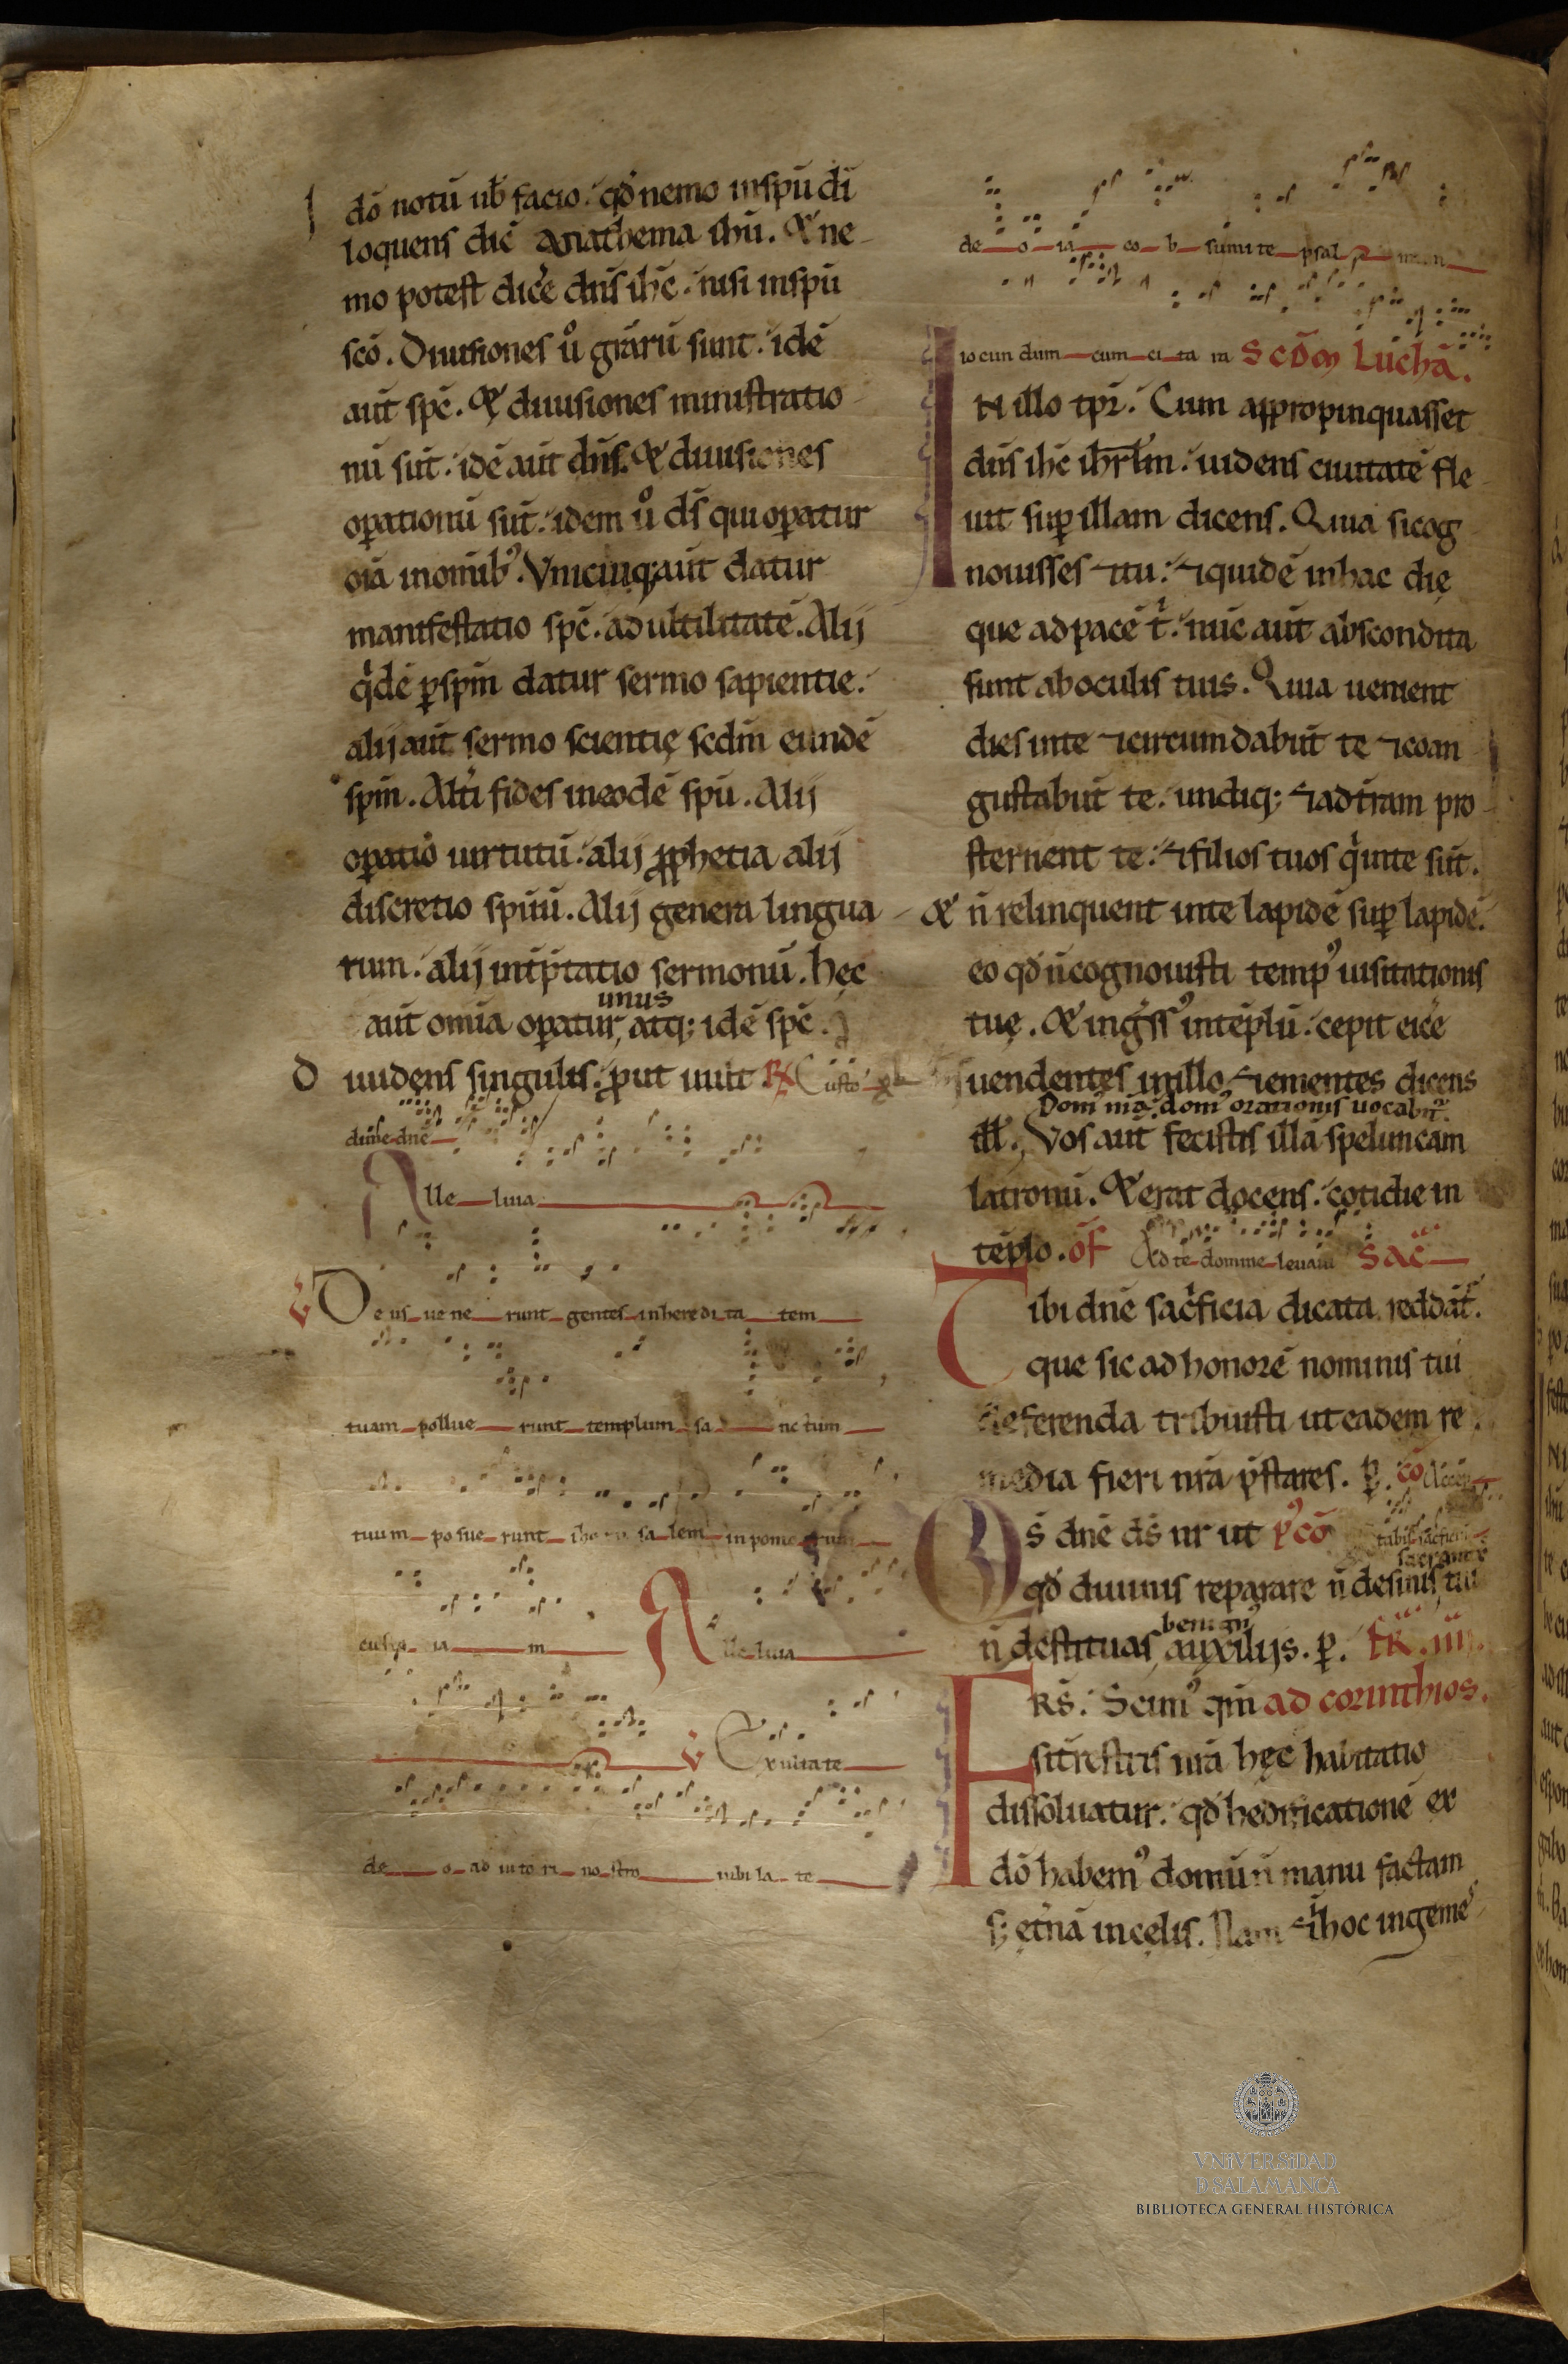 dō notū uƀ facio. qđ nemo inspū dī
loquens dič Anathema ihū. & ne
mo potest dic̄e dn̄s ihc̄. nisi inspū
sco̅. Diuisiones ů grārū sunt. idē
aut̄ spc̄. & diuisiones ministratio
nū sūt. idē aut̄ dn̄s. & diuisiones
oꝑationū sūt. idem ů dꝭ qui oꝑatur
oīa inomībꝰ. Vnicuiqꝫ aut̄ datur
manifestatio spc̄. ad ultilitatē. Alij
qͥdē ꝑ spm̄ datur sermo sapientie.
alij aut̄ sermo scientię scdm̄ eundē
spm̄. Alt̄i fides ineodē spū. Alij
oꝑatio uirtutū. alij ꝓphetia alij
discretio spūū. Alij genera lingua
rum. alij int̄p̄tatio sermonū. hęc
unus
aut̄ omīa oꝑatur, atqꝫ idē spc̄.
D uidens singulis. ꝓut uult R̸ Custo
diūe dnē
Alle luia
V̸ De us ue ne runt gentes inheredi ta tem
tuam pollue runt templum sa nctum
tuum posue runt sa lem in pomo
m Alle luia
V̸ Exultate
de o ad iuto ri no stro iubi la te
de o ia co b sumite psal
iocun dum cum ci ta ra Scd̄m Luchā.
IN illo tp̄r. Cum appropinquasset
dn̄s ihc̄ ihrl̄m. uidens ciuitatē fle
uit suꝑ illam dicens. Quia sicog
nouisses ⁊tu. ⁊quidē inhac die
que ad pacē tͥ. nūc aut̄ abscondita
sunt ab oculis tuis. Quia uenient
dies inte ⁊circumdabūt te ⁊coan
gustabūt te. undiqꝫ ⁊ad t̄ram pro
sternent te. ⁊filios tuos qͥ inte sūt.
& n̄ relinquent inte lapidē suꝑ lapidē.
eo qđ n̄ cognouisti tempꝰ uisitationis
tuę. & ingͤssꝰ intēplū. cepit eic̄e
uendentes inillo ⁊ementes dicens
Domꝰ mā domꝰ orationis uocabit᷑.
ill̄. Vos aut̄ fecistis illā speluncam
latronū. & erat docens. cotidie in
tēplo. oF Ad te domine leuaui Sac̄
Tibi dnē sac̄ficia dicata reddāt᷑.
que sic ad honorē nominis tui
deferenda tribuisti ut eadem re
media fieri nrā p̄stares. ꝑ. cō
Qs̄ dnē dꝭ nr ut pꝰcō
qđ diuinis reparare n̄ desinis, tuis
benignꝰ
n̄ destituas, auxilijs. ꝑ. FR̄. IIII.
FRS̄. Scimꝰ qm̄ ad corinthios.
si t̄restris nrā hęc habitatio
dissoluatur. qđ hedificationē ex
dō habemꝰ domū n̄ manu factam
sꝫ et̄nā in celis. Nam ⁊ihoc ingeme
VNiVERSiDAD
D SALAMANCA
BIBLIOTECA GENERAL HISTÓRICA